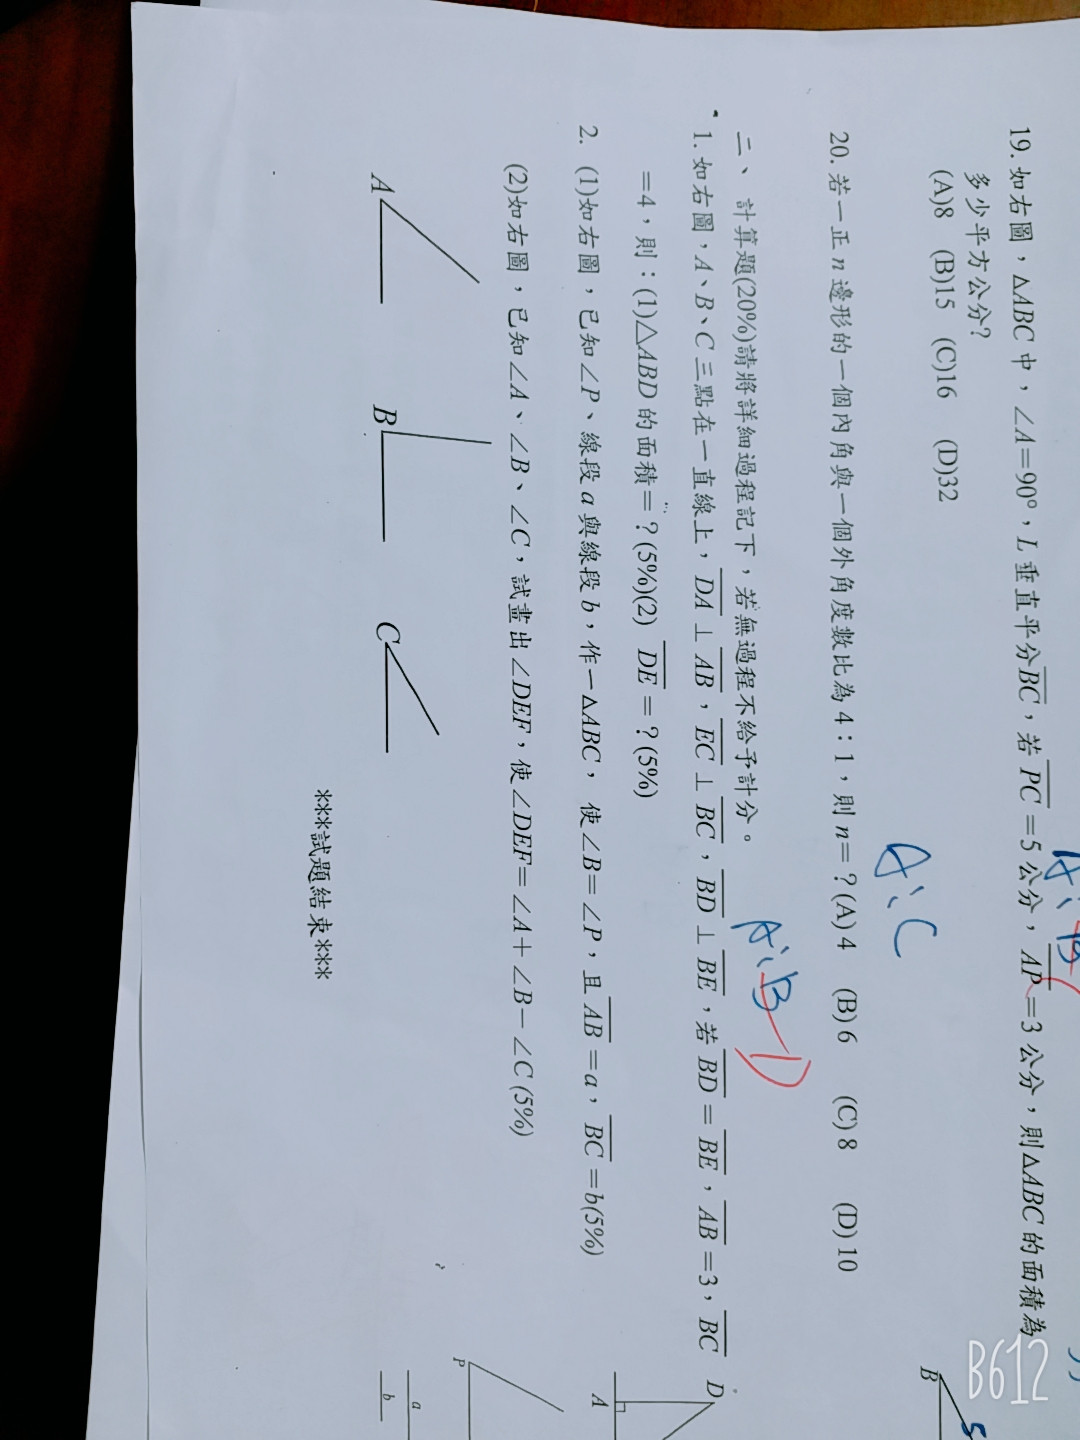 19. 如右圖，△ABC 中，∠A=90°，L 垂直平分BC，若 PC =5 公分，AP =3 公分，則△ABC 的面積為
多少平方公分?
(A)8 (B)15 (C)16 (D)32
A:C
20. 若一正 n 邊形的一個內角與一個外角度數比為 4：1，則 n=？(A) 4 (B) 6 (C) 8 (D) 10
A:B D
二、 計算題(20%)請將詳細過程記下，若無過程不給予計分。
1. 如右圖，A、B、C 三點在一直線上，DA ⊥ AB，EC ⊥ BC，BD ⊥ BE，若 BD = BE，AB =3，BC
=4，則：(1)△ABD 的面積=？(5%)(2) DE =？(5%)
D
A
2. (1)如右圖，已知 ∠P、線段 a 與線段 b，作一△ABC， 使 ∠B= ∠P，且 AB =a，BC =b(5%)
(2)如右圖，已知 ∠A、∠B、∠C，試畫出 ∠DEF，使 ∠DEF= ∠A+ ∠B− ∠C (5%)
P
a
b
A B C
***試題結束***
B
5
B612